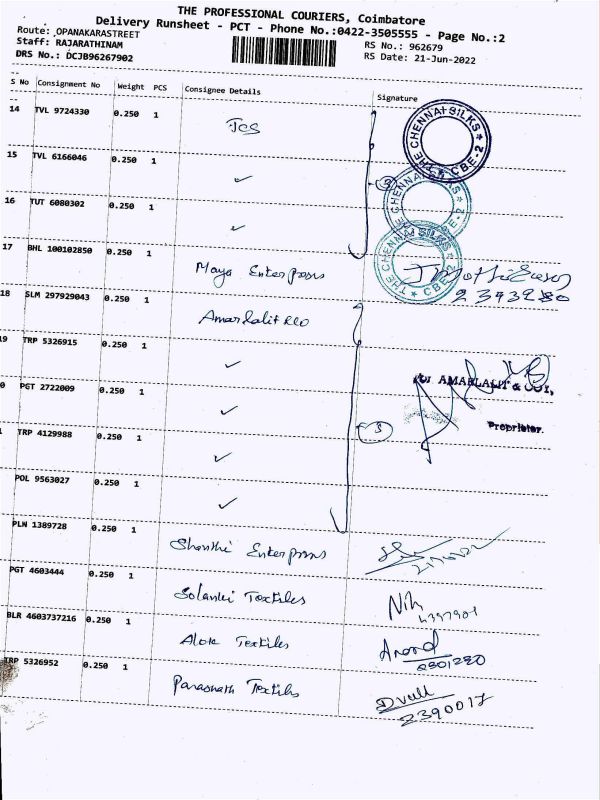 THE PROFESSIONAL COURIERS, Coimbatore
Delivery Runsheet - PCT - Phone No.:0422-3505555 - Page No.:2
Route: OPANAKARASTREET
Staff: RAJARATHINAM
RS No.: 962679
DRS No.: DCJB96267902
RS Date: 21-Jun-2022
S No Consignment No Weight PCS Consignee Details Signature
14 TVL 9724330 0.250 1 TCS
THE CHENNAI SILKS CBE-2
15 TVL 6166046 0.250 1 ✓
3
THE CHENNAI SILKS CBE-2
16 TUT 6080302 0.250 1 ✓
THE CHENNAI SILKS CBE-2
17 BHL 100102850 0.250 1 Maya Enterprises
18 SLM 297929043 0.250 1 Amarlalit &co
9 TRP 5326915 0.250 1 ✓
For AMARLALIT & COY,
0 PGT 2722009 0.250 1 ✓
Proprietor.
TRP 4129988 0.250 1 ✓
POL 9563027 0.250 1 ✓
PLN 1389728 0.250 1 Shanthi Enterprises
PGT 4603444 0.250 1 Solanki Textiles
BLR 4603737216 0.250 1 Alok Textiles
Anand
TRP 5326952 0.250 1 Parasnath Textiles
2390017